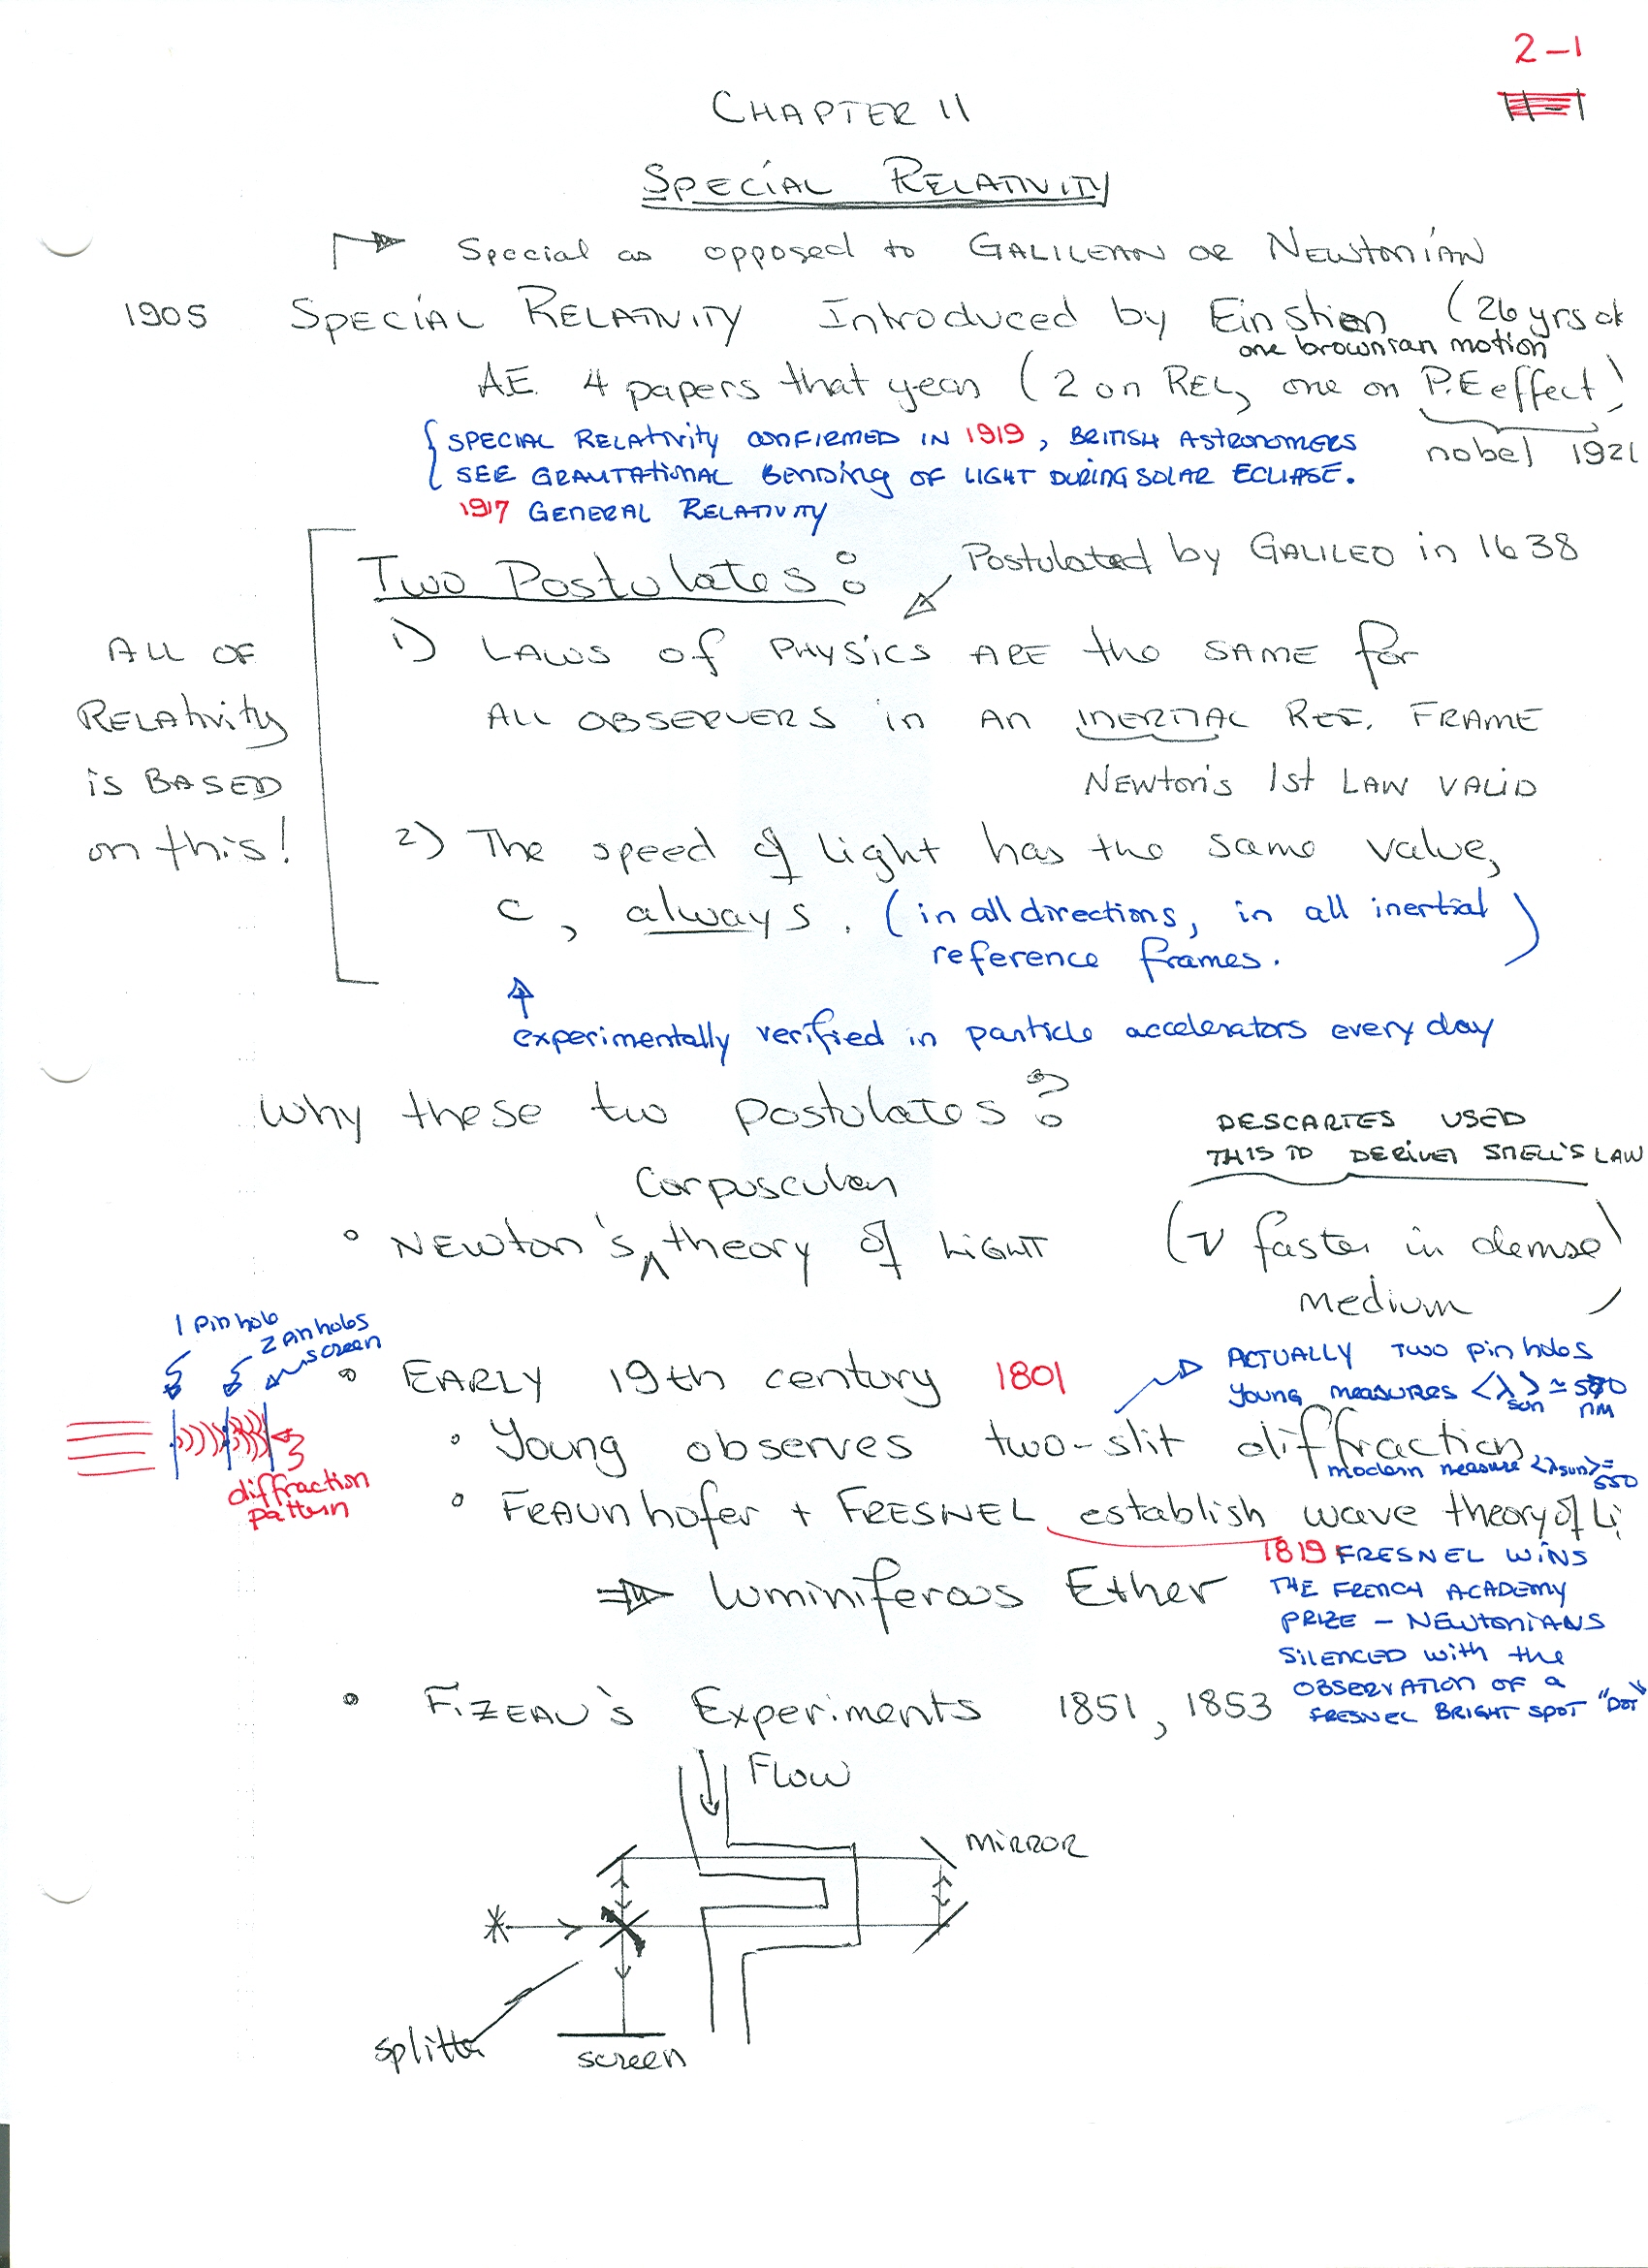 2-1
11-1
CHAPTER 11
SPECIAL RELATIVITY
Special as opposed to GALILEAN OR NEWTONIAN
1905 SPECIAL RELATIVITY Introduced by Einstien (26 yrs
one brownian motion
A.E. 4 papers that year (2 on REL, one on P.E effect)
nobel 1921
{ SPECIAL RELATIVITY CONFIRMED IN 1919, BRITISH ASTRONOMERS
SEE GRAVITATIONAL BENDING OF LIGHT DURING SOLAR ECLIPSE.
1917 GENERAL RELATIVITY
Two Postulates:
Postulated by GALILEO in 1638
ALL OF
RELATIVITY
is BASED
on this!
1) LAWS of PHYSICS ARE the SAME for
ALL OBSERVERS in AN INERTIAL REF. FRAME
NEWTON'S 1st LAW VALID
2) The speed of light has the same value,
c, always. (in all directions, in all inertial
reference frames.)
experimentally verified in particle accelerators every day
Why these two postulates?
DESCARTES USED
THIS TO DERIVE SNELL'S LAW
Corpuscular
• NEWTON'S ^ theory of LIGHT (v faster in dense
medium)
1 pinhole
2 pinholes
screen
diffraction
pattern
• EARLY 19th century 1801
ACTUALLY TWO pinholes
Young measures <λ> ≃ 570
sun nm
• Young observes two-slit diffraction
modern measure <λsun> =
550
• FRAUNhofer + FRESNEL establish wave theory of Li
⇒ Luminiferous Ether
1819 FRESNEL WINS
THE FRENCH ACADEMY
PRIZE - NEWTONIANS
SILENCED with the
OBSERVATION OF a
FRESNEL BRIGHT SPOT "DOT"
• FIZEAU'S Experiments 1851, 1853
Flow
MIRROR
splitter
screen